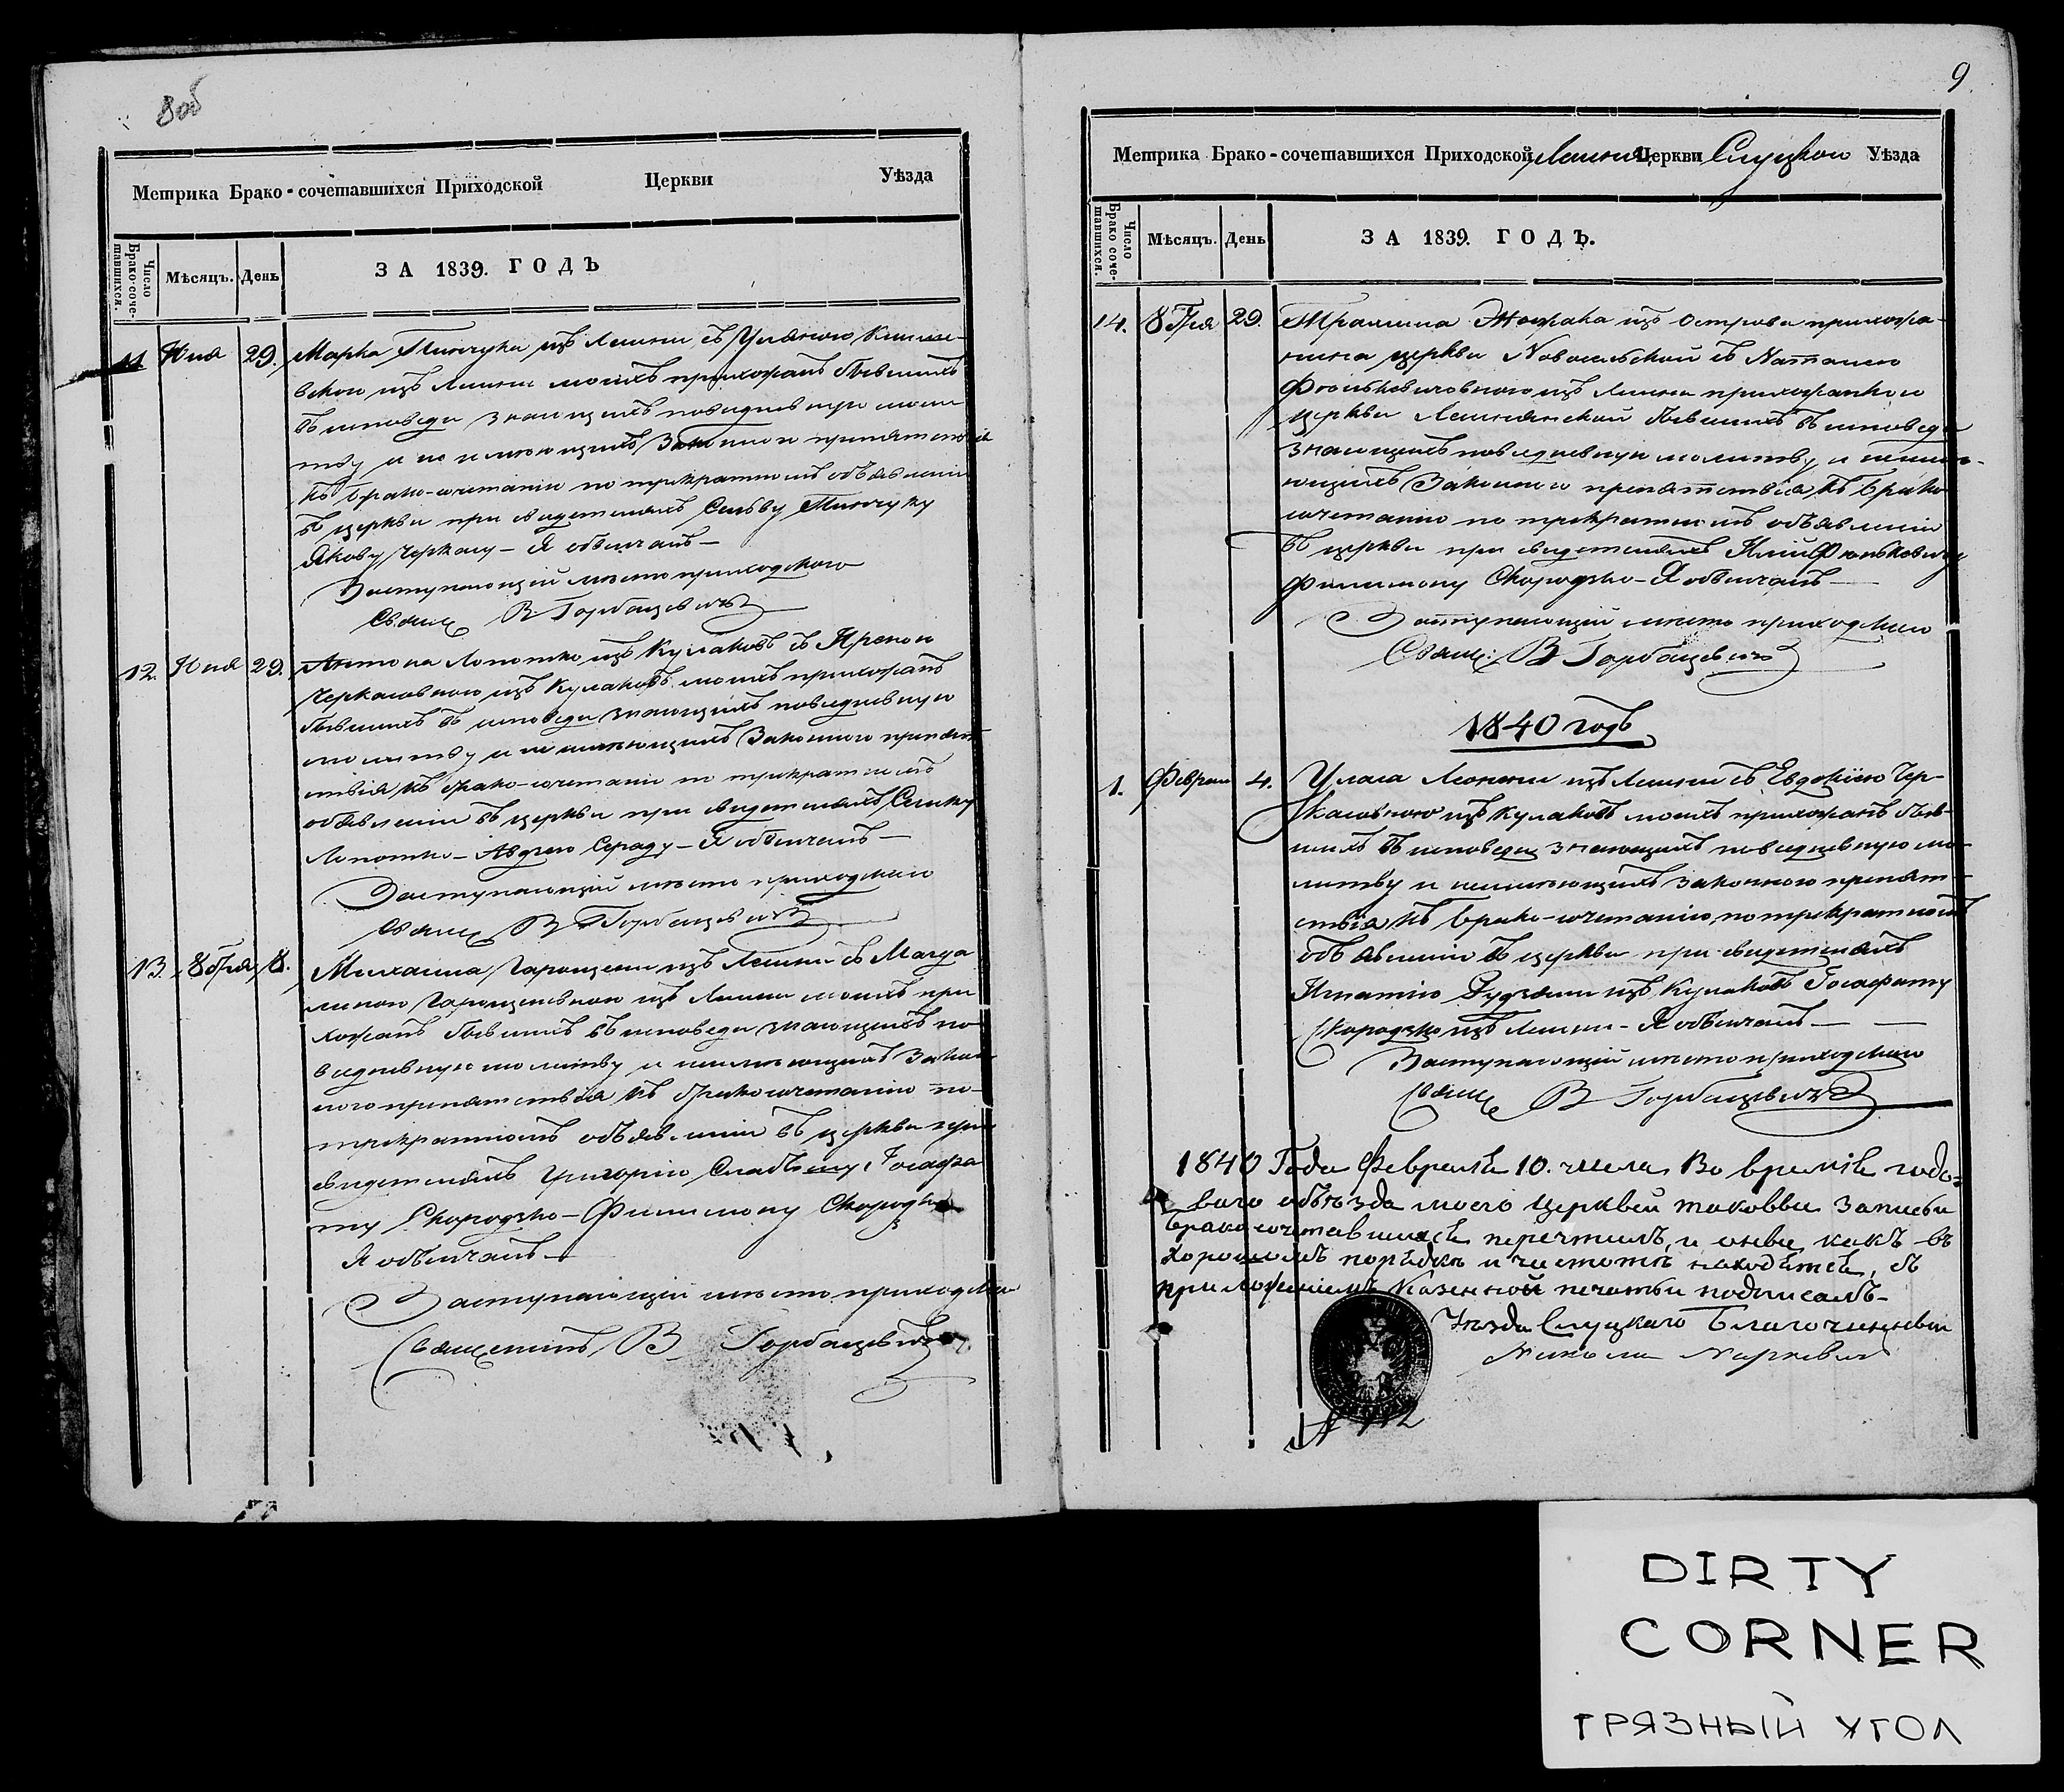 8об
Метрика Брако-сочетавшихся Приходской Церкви Уѣзда
Число Брако-сочетавшихся.
Мѣсяцъ. День
ЗА 1839. ГОДЪ
11 Юня 29. Марка изъ Лешни съ
изъ Лешни моихъ прихожанъ бывшихъ
въ исповеди знающихъ повседнев
тву и не имеющихъ Законнаго препятствія
къ Брако-сочетанію по трикратномъ объявленіи
въ церкви при свидетеляхъ
Якову Черкасу - Я обвенчалъ -
Заступающій место приходскаго
Свящ В Горбацевичъ
12. Юня 29. Антона Лопотко изъ Кулаковъ съ Иреною
Черкасовною изъ Кулаковъ моихъ прихожанъ
бывшихъ въ исповеди знающихъ повседневную
молитву и не имеющихъ Законного препят
ствія къ брако-сочетанію по трикратномъ
объявленіи въ церкви при свидетеляхъ
Лопотко - Авдею Сераду - Я обвенчалъ -
Заступающій место приходскаго
Свящ В Горбацевичъ
13. 8бря 8. Михаила изъ Лешни съ Магда
леною изъ Лешни моихъ при
хожанъ бывшихъ въ исповеди знающихъ по
вседневную молитву и неимеющихъ Закон
ного препятствія къ Брако сочетанію по
трикратномъ объявленіи въ церкви при
свидетеляхъ Григорію Іосафа
ту Скородко - Филимону Скородко
Я обвенчалъ -
Заступающій место приходска
Священникъ В Горбацевичъ
9.
Метрика Брако-сочетавшихся Приходской Церкви Слуцкои Уѣзда
Число Брако соче-тавшихся.
Мѣсяцъ. День
ЗА 1839. ГОДЪ.
14. 8бря 29. изъ Острова прихожа-
нина церкви съ Наталею
изъ Лешни прихожанкою
церкви Лешнянской бывшихъ въ исповеди
знающихъ повседневную молитву и неиме-
ющихъ Законного препятствія къ Брако
сочетанію по трикратномъ объявленіи
въ церкви при свидетеляхъ
Филимону Скородко - Я обвенчалъ -
Заступающій место приходскаго
Свящ: В Горбацевичъ
1840 годъ
1. Феврал 4. Уласа изъ Лешни съ Евдокіею Чер-
касовною изъ Кулаковъ моихъ прихожанъ быв-
шихъ въ исповеди знающихъ повседневную мо-
литву и неимеющихъ законного препят-
ствія къ Брако-сочетанію, по трикратномъ
объявленіи въ церкви при свидетеляхъ
Игнатію изъ Кулаковъ Іосафату
Скородко изъ Лешни - Я обвенчалъ -
Заступающій место приходскаго
Свящ В Горбацевичъ
1840 Года Февраля 10. числа Во время годо-
ваго объезда моего Церквей таковыи Записи
Брако сочетавшихся перечтилъ, и оныи какъ въ
хорошомъ порядкѣ и чистотѣ находятся, съ
приложеніемъ Казенной печати подписалъ-
Уезда Слуцкаго Благочинный
DIRTY
CORNER
ГРЯЗНЫЙ УГОЛ